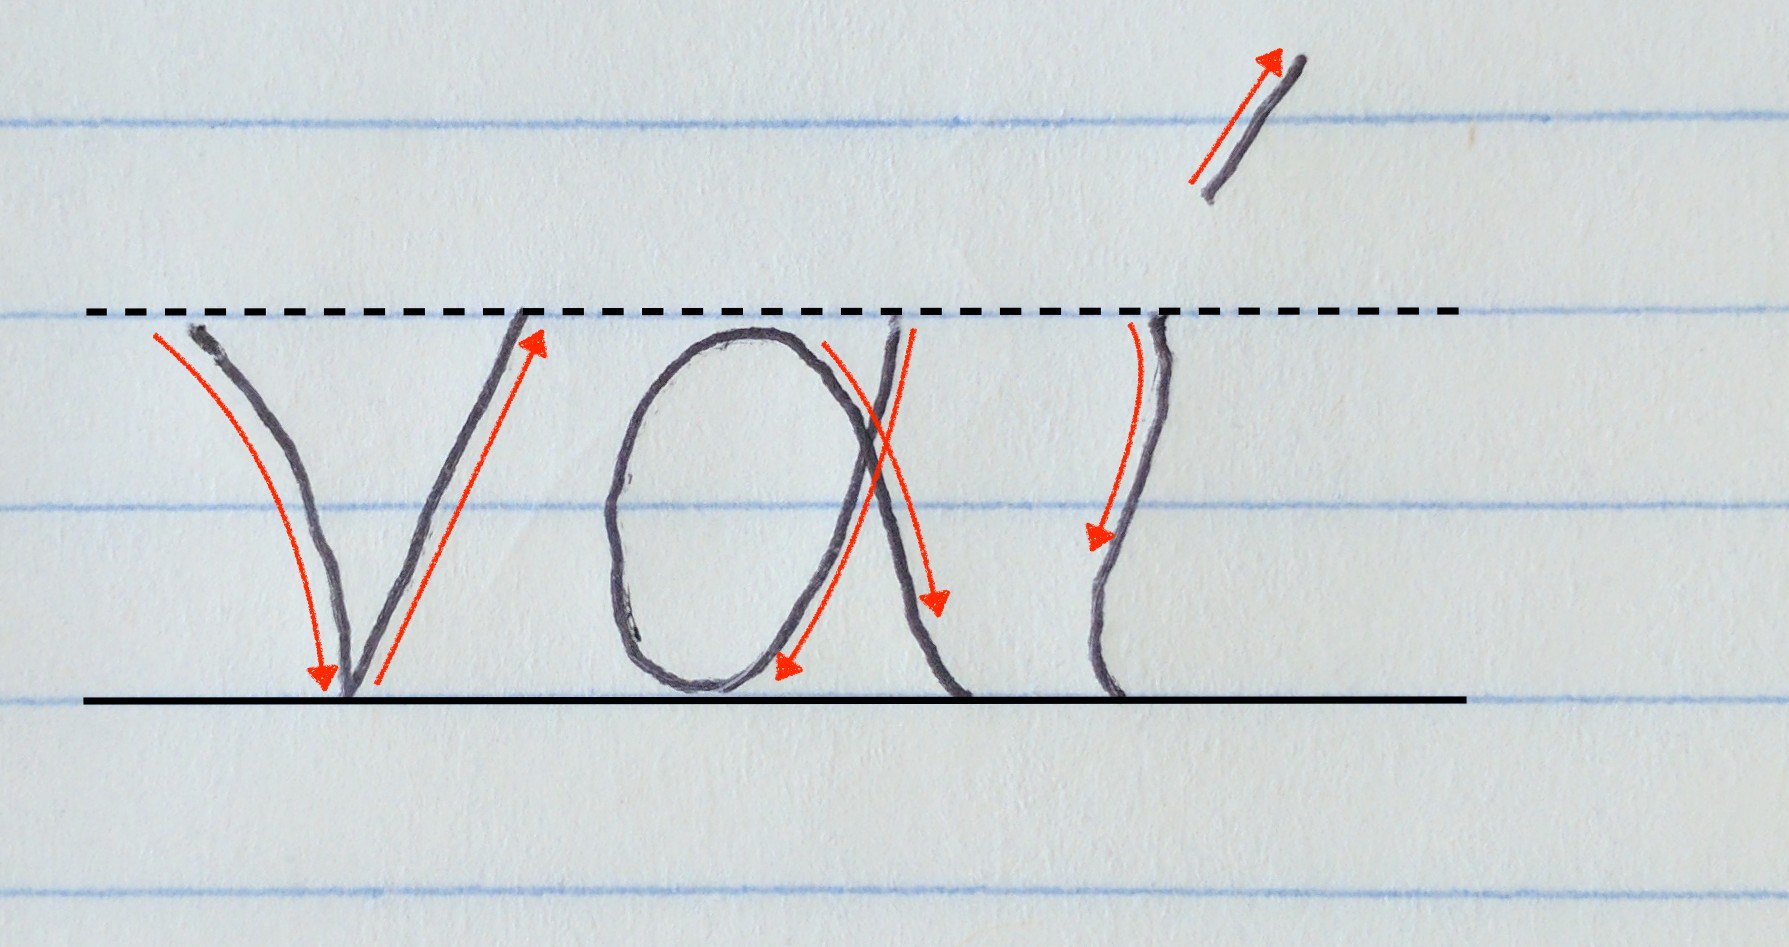 ναί